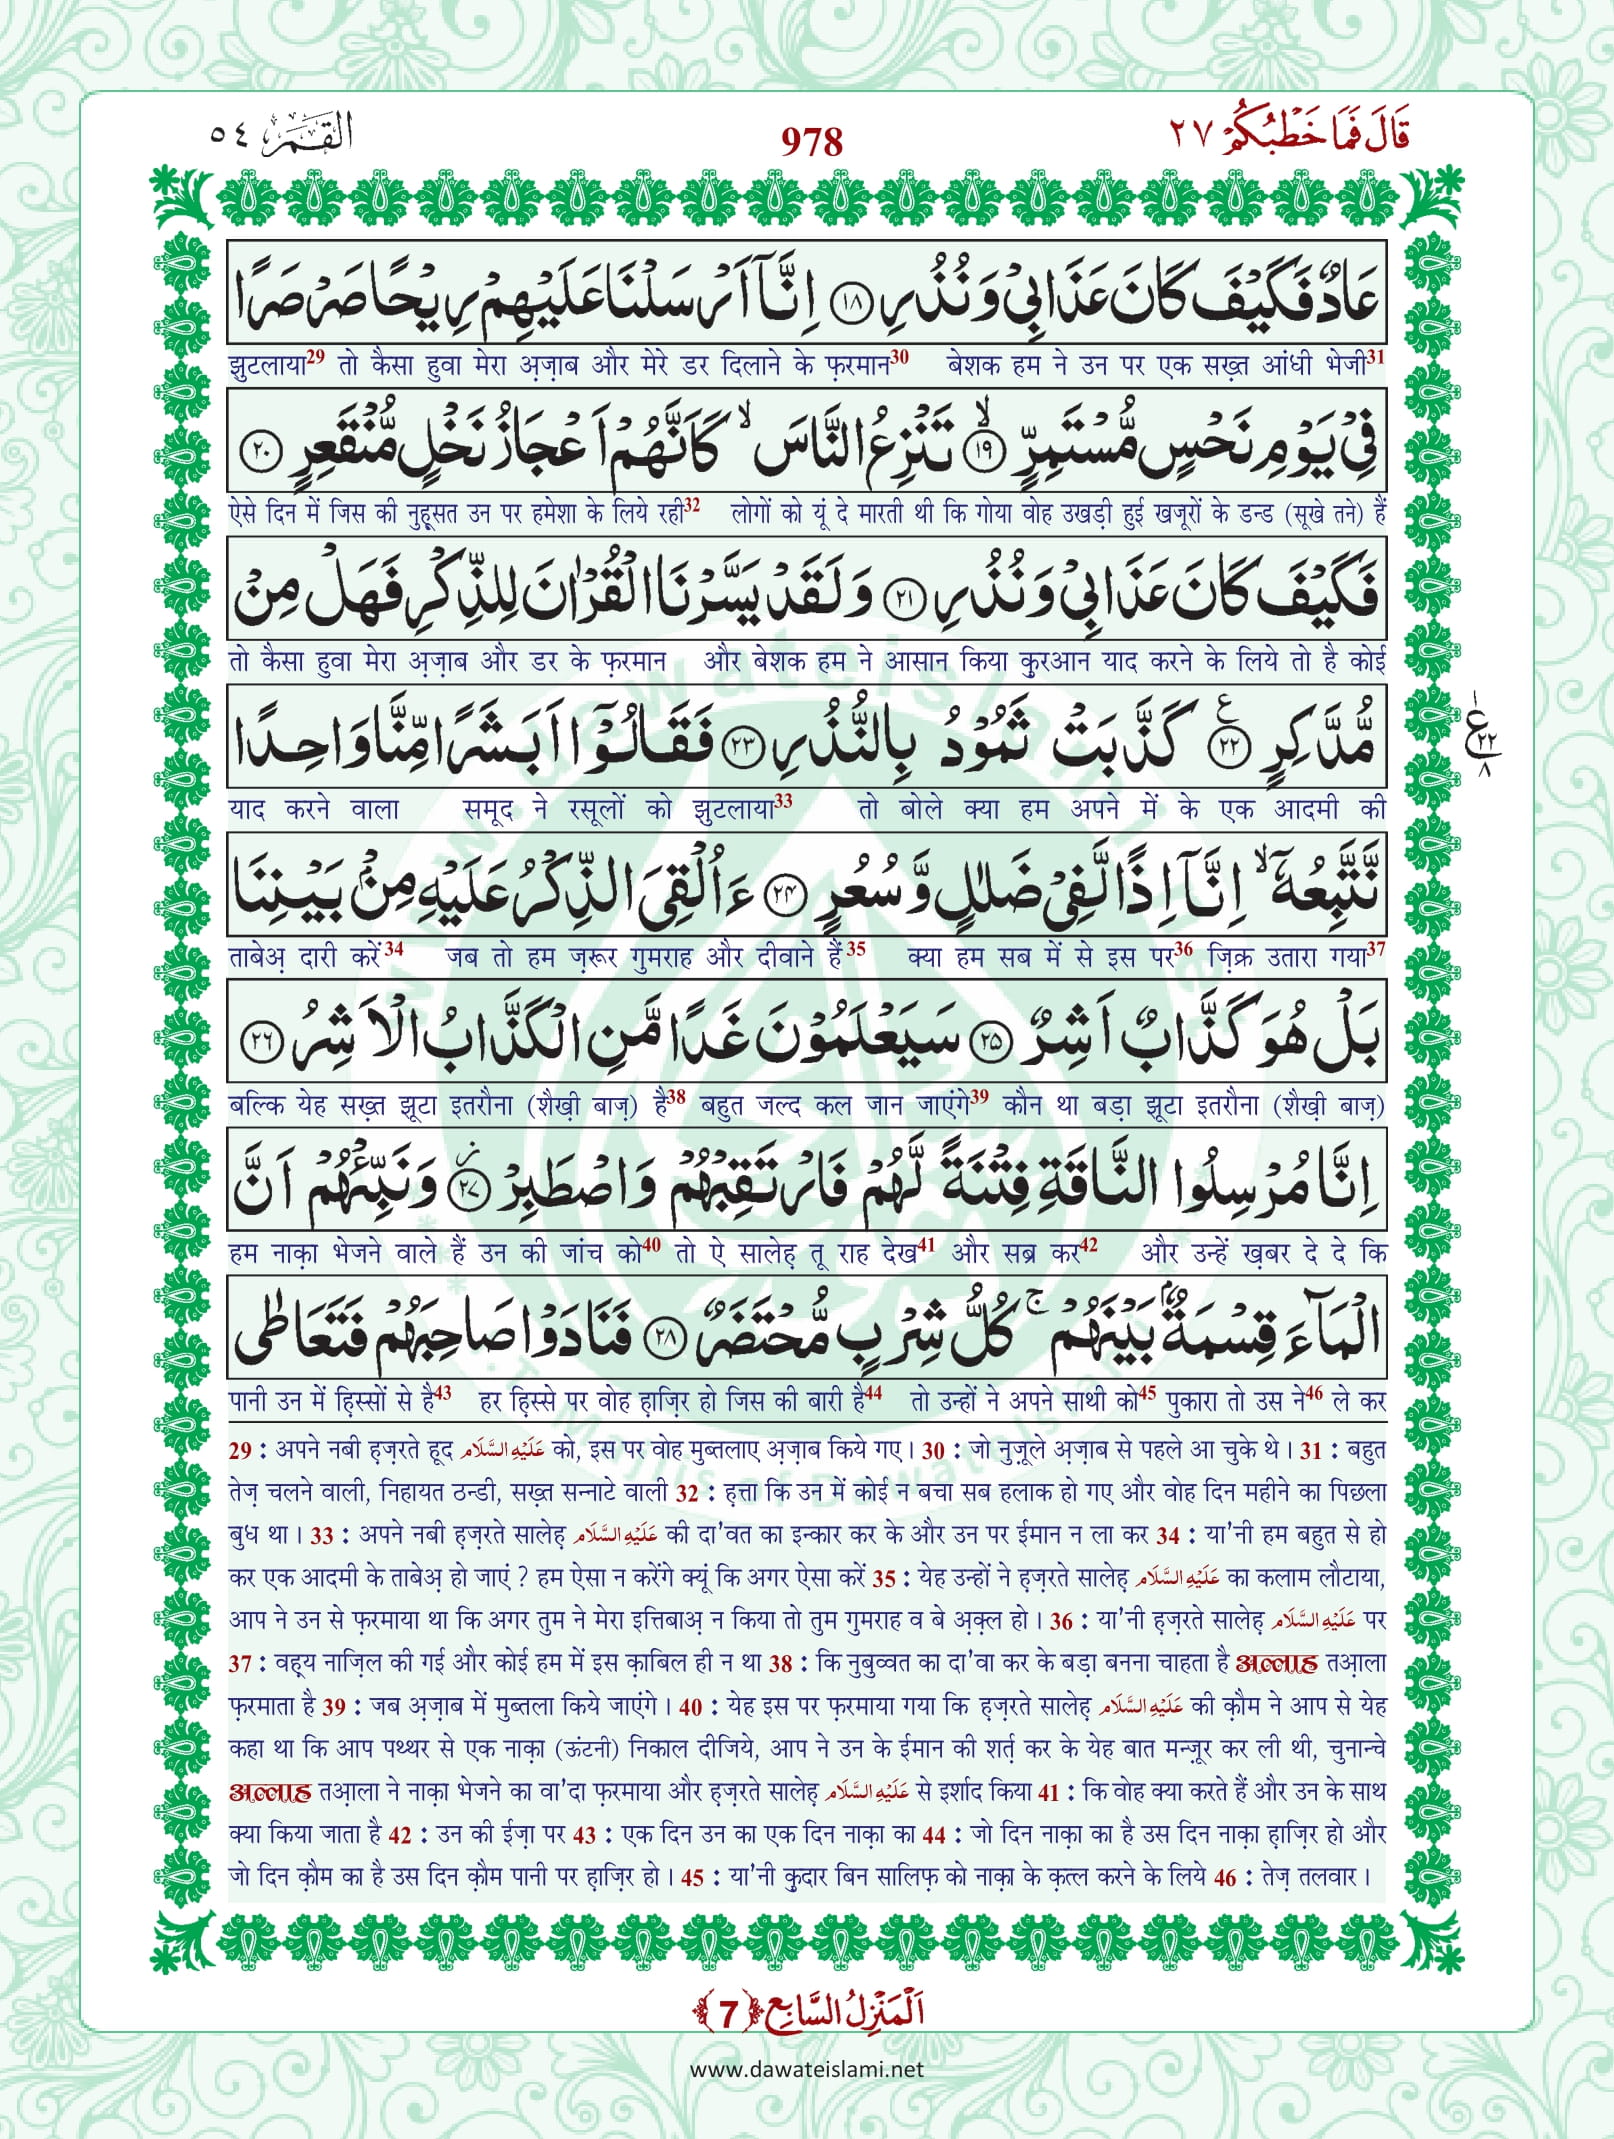 قَالَ فَمَا خَطْبُكُمْ ٢٧
978
القَمَر ٥٤
عَادٌ فَكَیْفَ كَانَ عَذَابِیْ وَ نُذُرِ ﴿١٨﴾ اِنَّاۤ اَرْسَلْنَا عَلَیْهِمْ رِیْحًا صَرْصَرًا
झुटलाया29 तो कैसा हुवा मेरा अ़ज़ाब और मेरे डर दिलाने के फ़रमान30 बेशक हम ने उन पर एक सख़्त आंधी भेजी31
فِیْ یَوْمِ نَحْسٍ مُّسْتَمِرٍّ ﴿١٩﴾ۙ تَنْزِعُ النَّاسَ ۙ كَاَنَّهُمْ اَعْجَازُ نَخْلٍ مُّنْقَعِرٍ ﴿٢٠﴾
ऐसे दिन में जिस की नुहूसत उन पर हमेशा के लिये रही32 लोगों को यूं दे मारती थी कि गोया वोह उखड़ी हुई खजूरों के डन्ड (सूखे तने) हैं
فَكَیْفَ كَانَ عَذَابِیْ وَ نُذُرِ ﴿٢١﴾ وَ لَقَدْ یَسَّرْنَا الْقُرْاٰنَ لِلذِّكْرِ فَهَلْ مِنْ
तो कैसा हुवा मेरा अ़ज़ाब और डर के फ़रमान और बेशक हम ने आसान किया क़ुरआन याद करने के लिये तो है कोई
مُّدَّكِرٍ ﴿٢٢﴾ع كَذَّبَتْ ثَمُوْدُ بِالنُّذُرِ ﴿٢٣﴾ فَقَالُوْۤا اَبَشَرًا مِّنَّا وَاحِدًا
ع ٢٢ ٨
याद करने वाला समूद ने रसूलों को झुटलाया33 तो बोले क्या हम अपने में के एक आदमी की
نَّتَّبِعُهٗۤ ۙ اِنَّاۤ اِذًا لَّفِیْ ضَلٰلٍ وَّ سُعُرٍ ﴿٢٤﴾ ءَاُلْقِیَ الذِّكْرُ عَلَیْهِ مِنْۢ بَیْنِنَا
ताबेअ़ दारी करें34 जब तो हम ज़रूर गुमराह और दीवाने हैं35 क्या हम सब में से इस पर36 ज़िक्र उतारा गया37
بَلْ هُوَ كَذَّابٌ اَشِرٌ ﴿٢٥﴾ سَیَعْلَمُوْنَ غَدًا مَّنِ الْكَذَّابُ الْاَشِرُ ﴿٢٦﴾
बल्कि येह सख़्त झूटा इतरौना (शैख़ी बाज़) है38 बहुत जल्द कल जान जाएंगे39 कौन था बड़ा झूटा इतरौना (शैख़ी बाज़)
اِنَّا مُرْسِلُوا النَّاقَةِ فِتْنَةً لَّهُمْ فَارْتَقِبْهُمْ وَ اصْطَبِرْ ﴿٢٧﴾ز وَ نَبِّئْهُمْ اَنَّ
हम नाक़ा भेजने वाले हैं उन की जांच को40 तो ऐ सालेह़ तू राह देख41 और सब्र कर42 और उन्हें ख़बर दे दे कि
الْمَآءَ قِسْمَةٌۢ بَیْنَهُمْ ۚ كُلُّ شِرْبٍ مُّحْتَضَرٌ ﴿٢٨﴾ فَنَادَوْا صَاحِبَهُمْ فَتَعَاطٰى
पानी उन में ह़िस्सों से है43 हर ह़िस्से पर वोह ह़ाज़िर हो जिस की बारी है44 तो उन्हों ने अपने साथी को45 पुकारा तो उस ने46 ले कर
29 : अपने नबी ह़ज़रते हूद عَلَیْهِ السَّلَام को, इस पर वोह मुब्तलाए अ़ज़ाब किये गए। 30 : जो नुज़ूले अ़ज़ाब से पहले आ चुके थे। 31 : बहुत
तेज़ चलने वाली, निहायत ठन्डी, सख़्त सन्नाटे वाली 32 : ह़त्ता कि उन में कोई न बचा सब हलाक हो गए और वोह दिन महीने का पिछला
बुध था। 33 : अपने नबी ह़ज़रते सालेह़ عَلَیْهِ السَّلَام की दा'वत का इन्कार कर के और उन पर ईमान न ला कर 34 : या'नी हम बहुत से हो
कर एक आदमी के ताबेअ़ हो जाएं ? हम ऐसा न करेंगे क्यूं कि अगर ऐसा करें 35 : येह उन्हों ने ह़ज़रते सालेह़ عَلَیْهِ السَّلَام का कलाम लौटाया,
आप ने उन से फ़रमाया था कि अगर तुम ने मेरा इत्तिबाअ़ न किया तो तुम गुमराह व बे अ़क़्ल हो। 36 : या'नी ह़ज़रते सालेह़ عَلَیْهِ السَّلَام पर
37 : वह़्य नाज़िल की गई और कोई हम में इस क़ाबिल ही न था 38 : कि नुबुव्वत का दा'वा कर के बड़ा बनना चाहता है अल्लाह तआ़ला
फ़रमाता है 39 : जब अ़ज़ाब में मुब्तला किये जाएंगे। 40 : येह इस पर फ़रमाया गया कि ह़ज़रते सालेह़ عَلَیْهِ السَّلَام की क़ौम ने आप से येह
कहा था कि आप पथ्थर से एक नाक़ा (ऊंटनी) निकाल दीजिये, आप ने उन के ईमान की शर्त़ कर के येह बात मन्ज़ूर कर ली थी, चुनान्चे
अल्लाह तआ़ला ने नाक़ा भेजने का वा'दा फ़रमाया और ह़ज़रते सालेह़ عَلَیْهِ السَّلَام से इर्शाद किया 41 : कि वोह क्या करते हैं और उन के साथ
क्या किया जाता है 42 : उन की ईज़ा पर 43 : एक दिन उन का एक दिन नाक़ा का 44 : जो दिन नाक़ा का है उस दिन नाक़ा ह़ाज़िर हो और
जो दिन क़ौम का है उस दिन क़ौम पानी पर ह़ाज़िर हो। 45 : या'नी क़ुदार बिन सालिफ़ को नाक़ा के क़त्ल करने के लिये 46 : तेज़ तलवार।
اَلْمَنْزِلُ السَّابِع ﴿7﴾
www.dawateislami.net